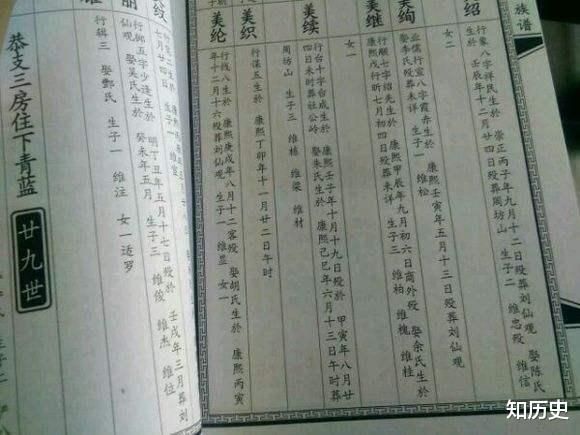 族谱
绍
行象八字祥民生於 崇正丙子年九月十二日殁葬刘仙观 娶陈氏
生於 壬辰年十二月廿四日殁葬周坊山 生子二 维忠殁 维信
女二
美绚
业儒行宣八字霞赤生於 康熙壬寅年五月十三日殁葬刘仙观
娶李氏殁葬未详 生子一 维松
美继
行顺七字绍先生於 康熙甲辰年九月初六日商外殁 娶余氏生於
康熙戊 七月初四日殁葬未详 生子三 维柏 维槐 维桂
女一
美续
行台十字台成生於 康熙壬子年十月十九日殁於 甲寅年八月廿
四日未时葬社公岭 娶朱氏生於 康熙己巳年六月十三日午时葬
周坊山 生子三 维栋 维梁 维材
美织
行谋五生於 康熙丁卯年十一月廿二日午时
美纶
行线八生於 康熙庚戌年八月十二客殁 娶胡氏生於 康熙丙寅
年十二月十六殁葬刘仙观 生子一 维显 女一
纹
丽
五字少逵生於 明丁丑年五月十七日殁於 壬戌年三月葬刘
仙观 娶吴氏生於 癸未年五月 生子三 维俊 维杰 维位
行辑三 娶邹氏 生子一 维注 女一适罗
恭支三房住下青蓝
廿九世
知历史